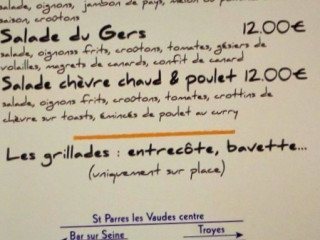 salade, oignons, jambon de pays, melon de
saison, croûtons
Salade du Gers 12.00€
salade, oignonss frits, croûtons, tomates, gésiers de
volailles, magrets de canards, confit de canard
Salade chèvre chaud & poulet 12.00€
salade, oignons frits, croûtons, tomates, crottins de
chèvre sur toasts, émincés de poulet au curry
Les grillades : entrecôte, bavette...
(uniquement sur place)
St Parres les Vaudes centre
Bar sur Seine Troyes